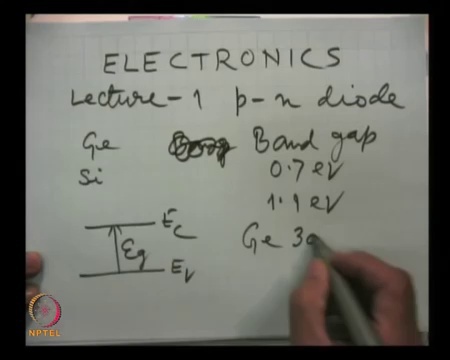 ELECTRONICS
Lecture-1 p-n diode
Ge Band gap
Si 0.7 eV
1.1 eV
Ec
Eg
Ev
Ge 3
NPTEL